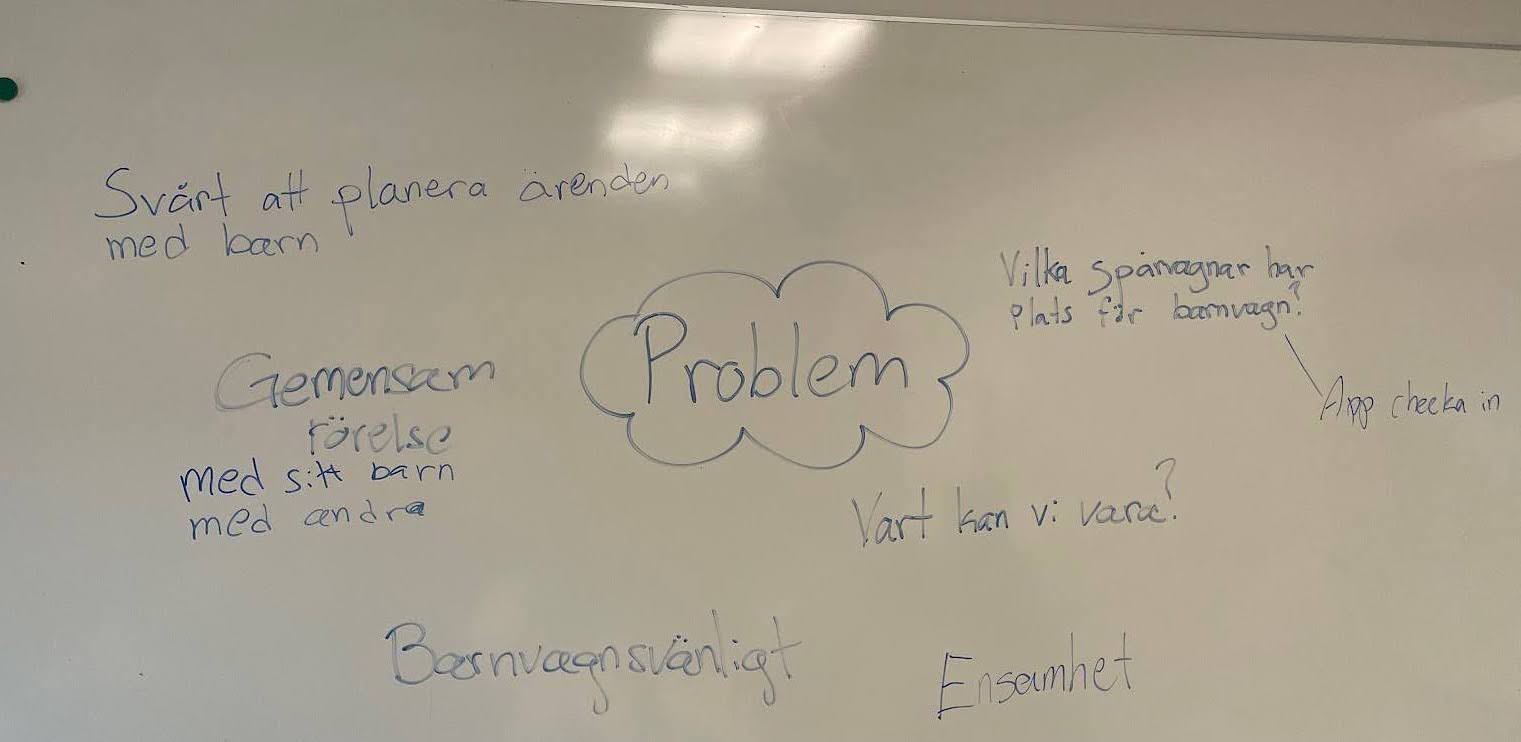 Svårt att planera ärenden
med barn
Vilka spårvagnar har
plats för barnvagn?
App checka in
Problem
Gemensam
rörelse
med sitt barn
med andra
Vart kan vi vara?
Barnvagnsvänligt
Ensamhet